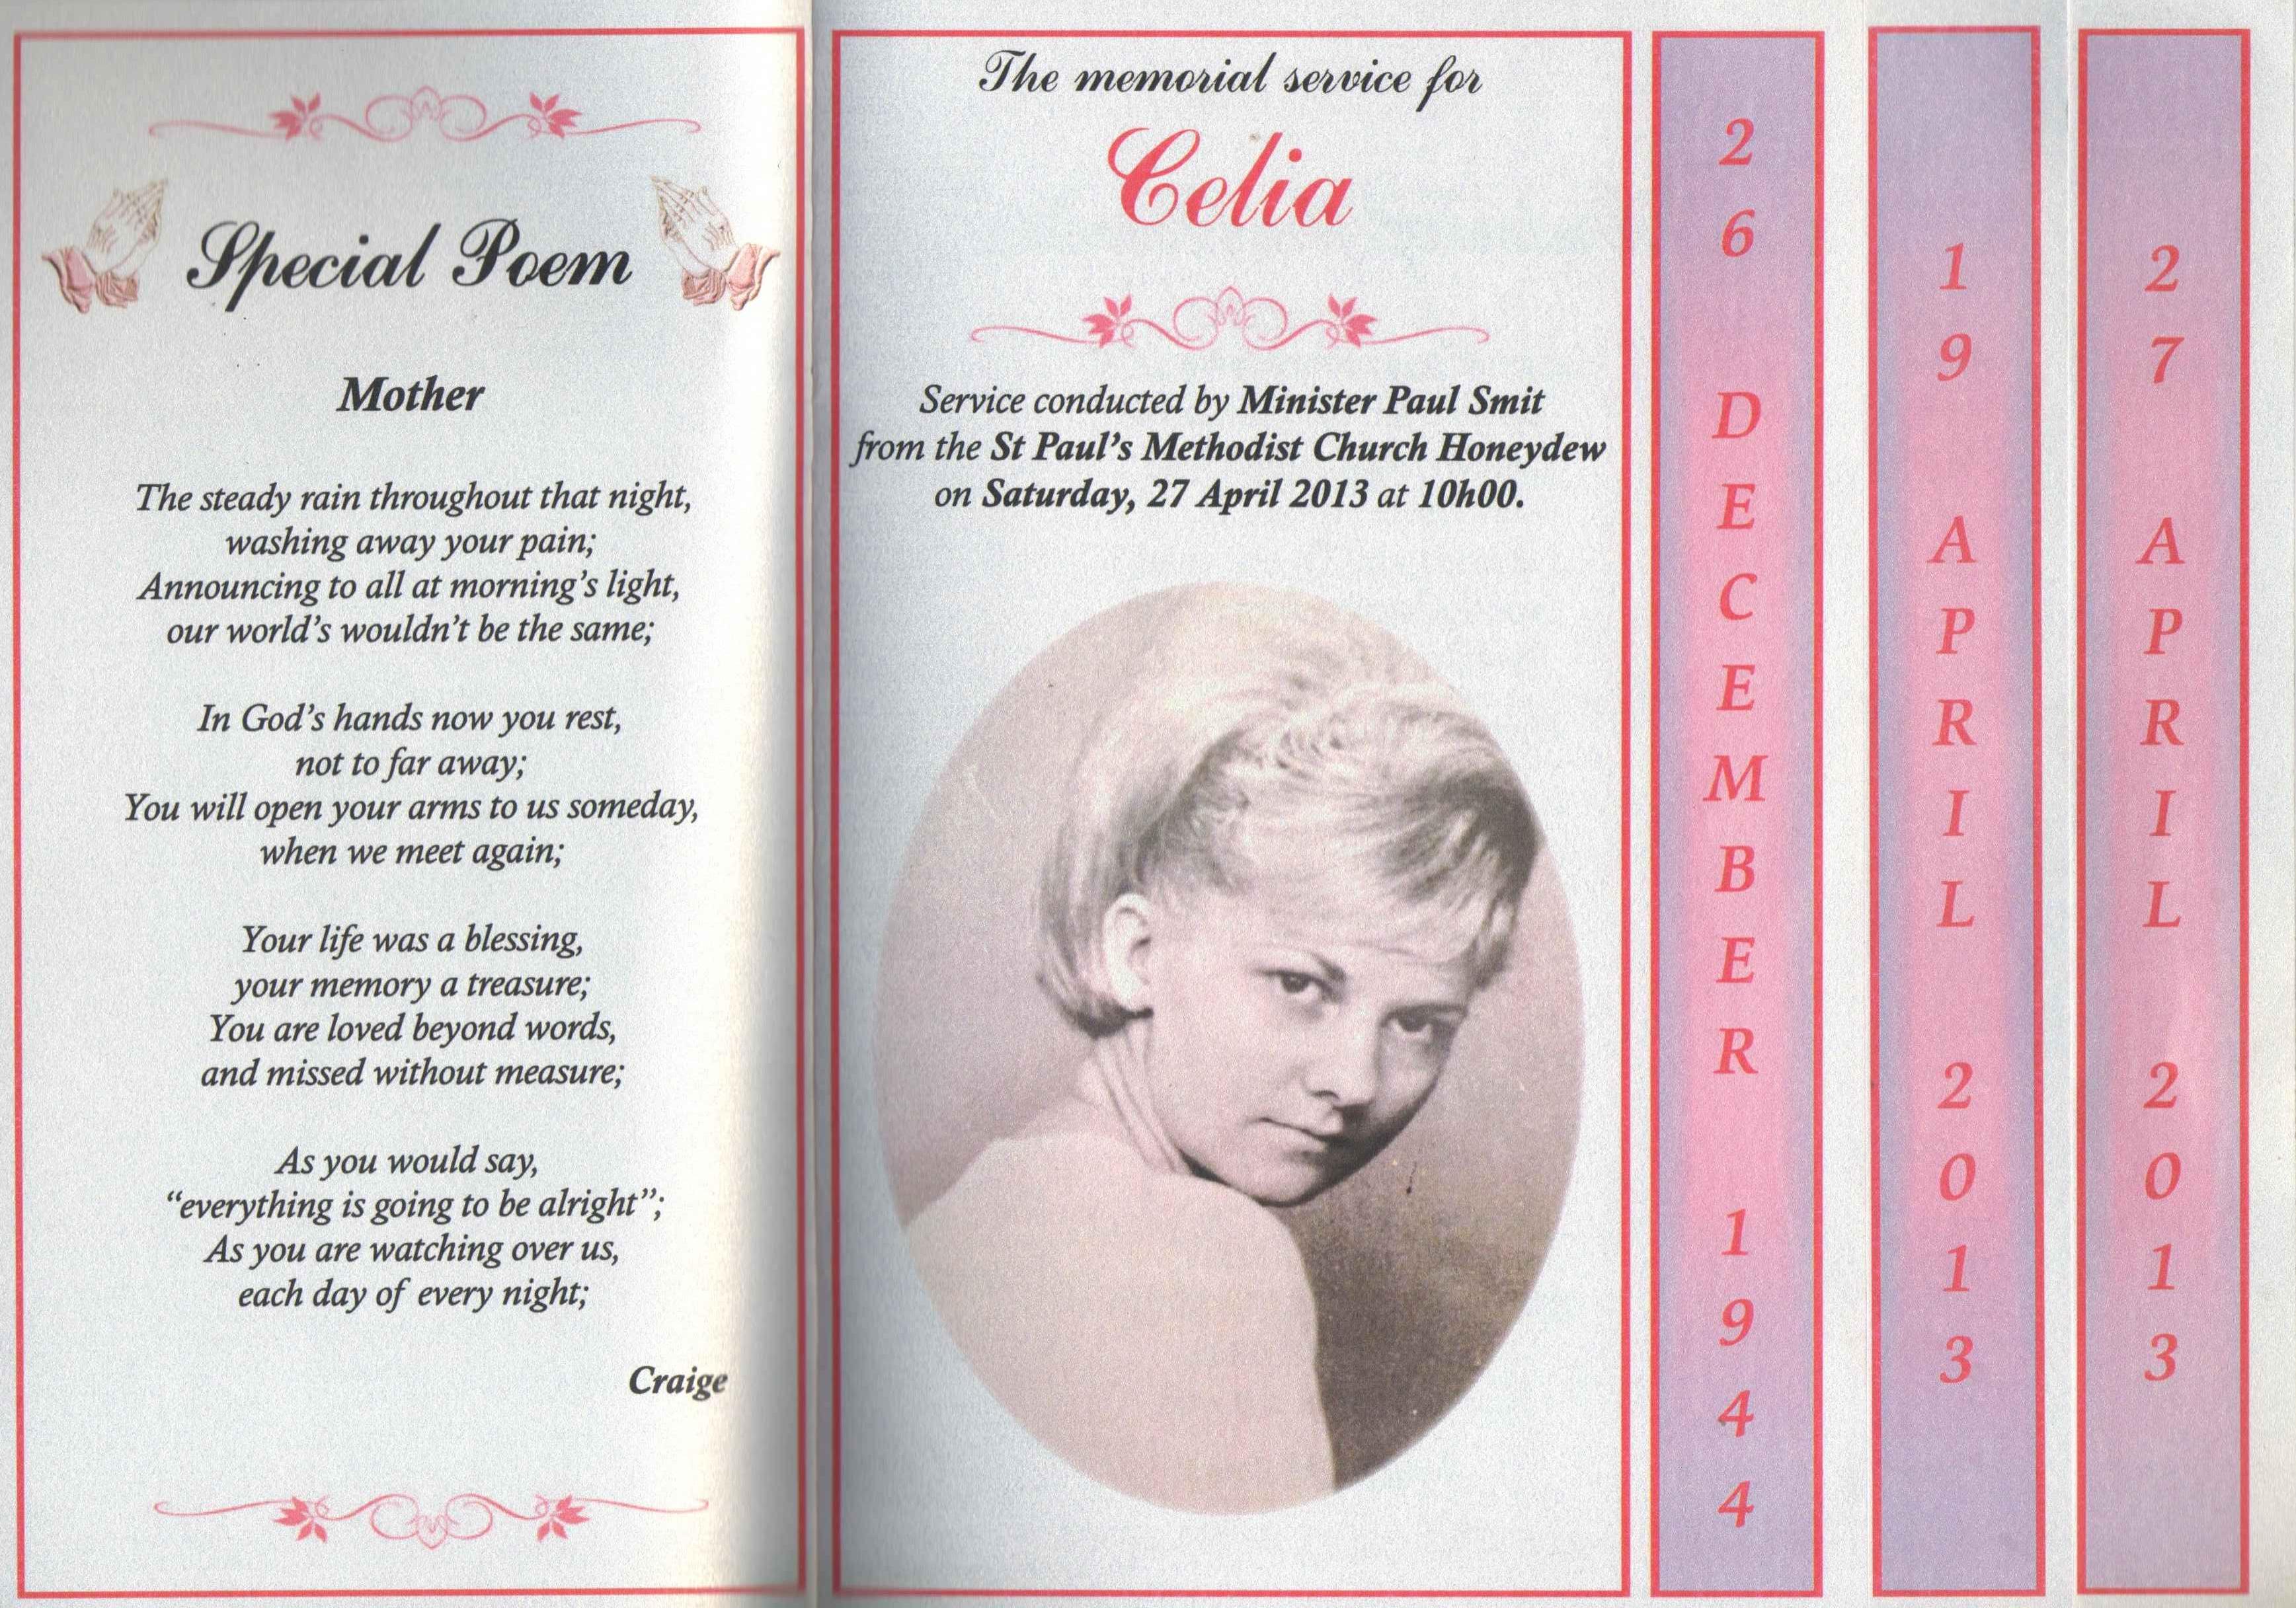 Special Poem
Mother
The steady rain throughout that night,
washing away your pain;
Announcing to all at morning's light,
our world's wouldn't be the same;
In God's hands now you rest,
not to far away;
You will open your arms to us someday,
when we meet again;
Your life was a blessing,
your memory a treasure;
You are loved beyond words,
and missed without measure;
As you would say,
“everything is going to be alright”;
As you are watching over us,
each day of every night;
Craige
The memorial service for
Celia
Service conducted by Minister Paul Smit
from the St Paul's Methodist Church Honeydew
on Saturday, 27 April 2013 at 10h00.
26 DECEMBER 1944
19 APRIL 2013
27 APRIL 2013